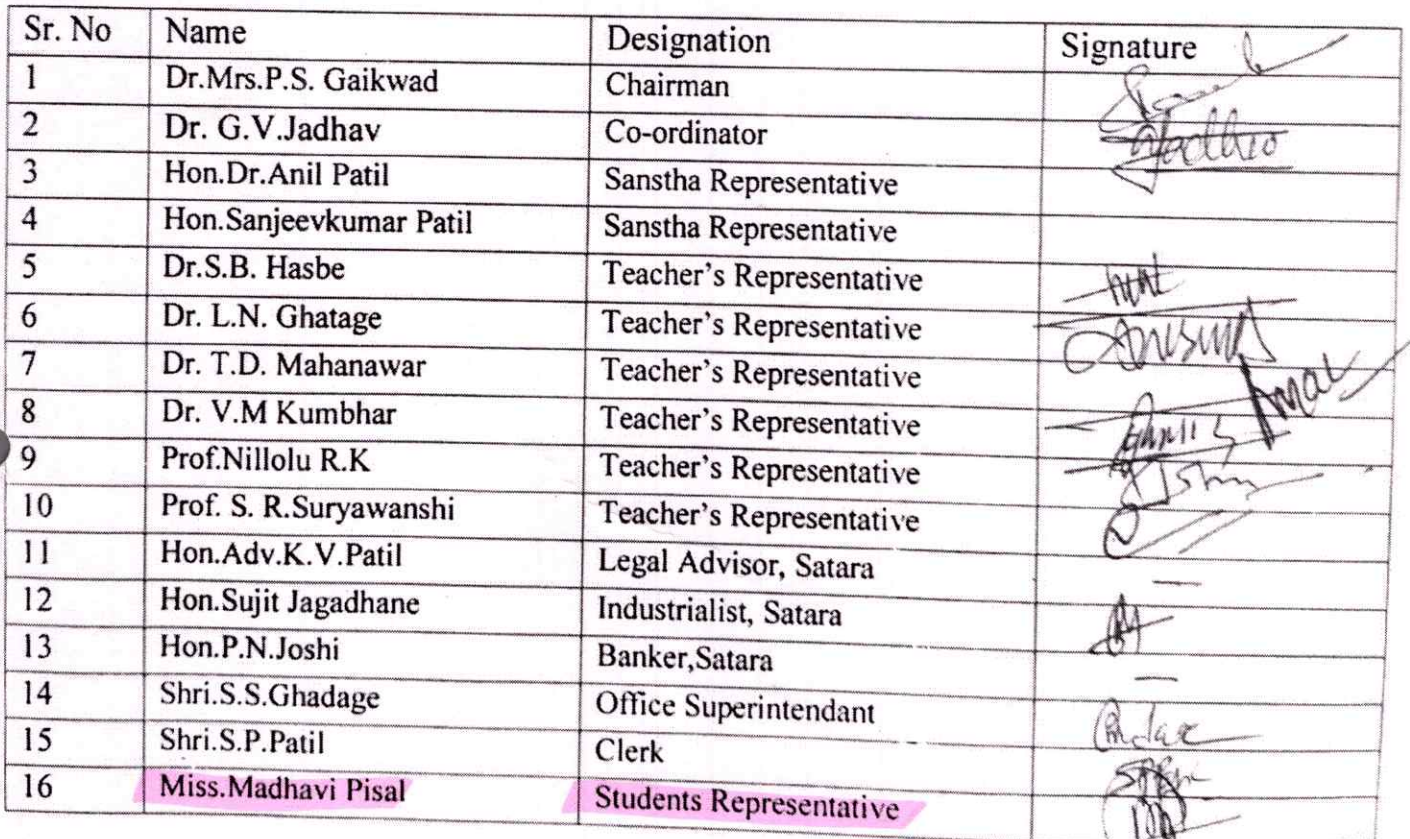 Sr. No Name Designation Signature
1 Dr.Mrs.P.S. Gaikwad Chairman
2 Dr. G.V.Jadhav Co-ordinator
3 Hon.Dr.Anil Patil Sanstha Representative
4 Hon.Sanjeevkumar Patil Sanstha Representative
5 Dr.S.B. Hasbe Teacher's Representative
6 Dr. L.N. Ghatage Teacher's Representative
7 Dr. T.D. Mahanawar Teacher's Representative
8 Dr. V.M Kumbhar Teacher's Representative
9 Prof.Nillolu R.K Teacher's Representative
10 Prof. S. R.Suryawanshi Teacher's Representative
11 Hon.Adv.K.V.Patil Legal Advisor, Satara —
12 Hon.Sujit Jagadhane Industrialist, Satara
13 Hon.P.N.Joshi Banker,Satara —
14 Shri.S.S.Ghadage Office Superintendant
15 Shri.S.P.Patil Clerk
16 Miss.Madhavi Pisal Students Representative